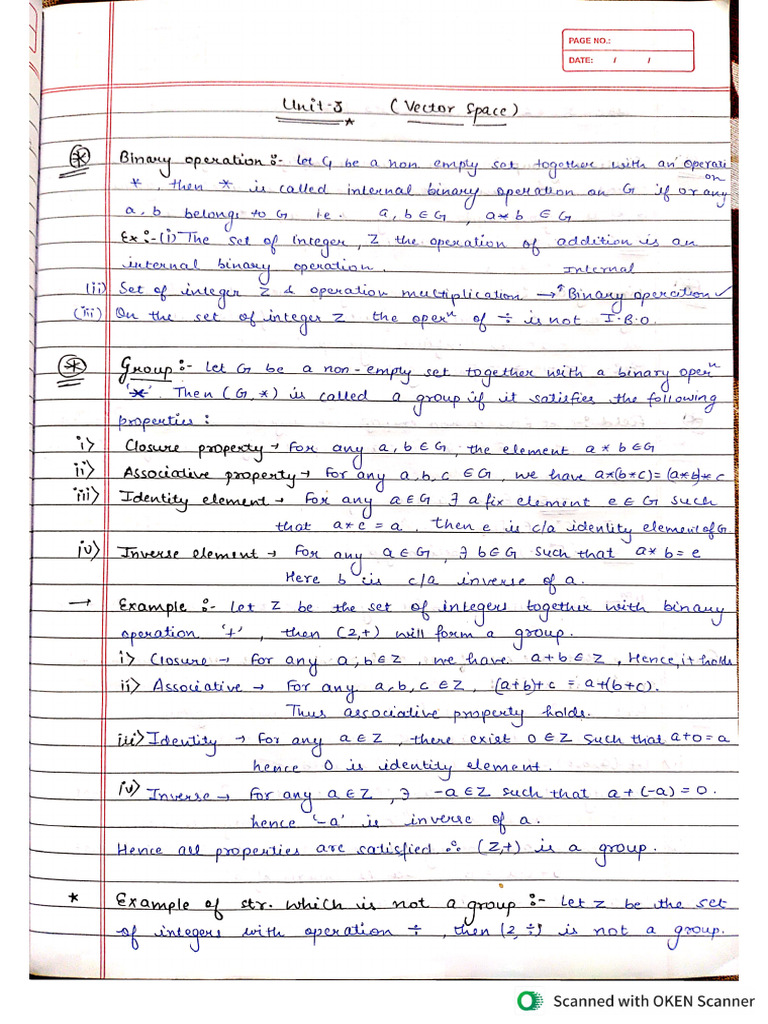 PAGE NO.:
DATE: / /
Unit-3 (Vector Space)
* Binary operation :- Let G be a non empty set together with an operation
*, then * is called internal binary operation on G if or any
a, b belongs to G i.e. a, b ∈ G, a*b ∈ G
Ex :- (i) The set of integer, Z the operation of addition is an
internal binary operation.
(ii) Set of integer Z & operation multiplication → Internal Binary operation ✓
(iii) On the set of integer Z the operⁿ of ÷ is not I.B.O.
* Group :- Let G be a non-empty set together with a binary operⁿ
'*'. Then (G, *) is called a group if it satisfies the following
properties :
i> Closure property → For any a, b ∈ G, the element a * b ∈ G
ii> Associative property → For any a, b, c ∈ G, we have a*(b*c) = (a*b)*c
iii> Identity element → For any a ∈ G ∃ a fix element e ∈ G such
that a*e = a, then e is c/a identity element of G
iv> Inverse element → For any a ∈ G, ∃ b ∈ G such that a* b = e
Here b is c/a inverse of a.
→ Example :- Let Z be the set of integers together with binary
operation '+', then (Z,+) will form a group.
i> Closure → For any a, b ∈ Z, we have a+b ∈ Z, Hence, it holds
ii> Associative → For any a, b, c ∈ Z, (a+b)+c = a+(b+c).
Thus associative property holds.
iii> Identity → For any a ∈ Z, there exist 0 ∈ Z such that a+0 = a
hence 0 is identity element.
iv> Inverse → For any a ∈ Z, ∃ -a ∈ Z such that a + (-a) = 0.
hence '-a' is inverse of a.
Hence all properties are satisfied ∴ (Z,+) is a group.
* Example of str. which is not a group :- Let Z be the set
of integers with operation ÷, then (Z, ÷) is not a group.
Scanned with OKEN Scanner